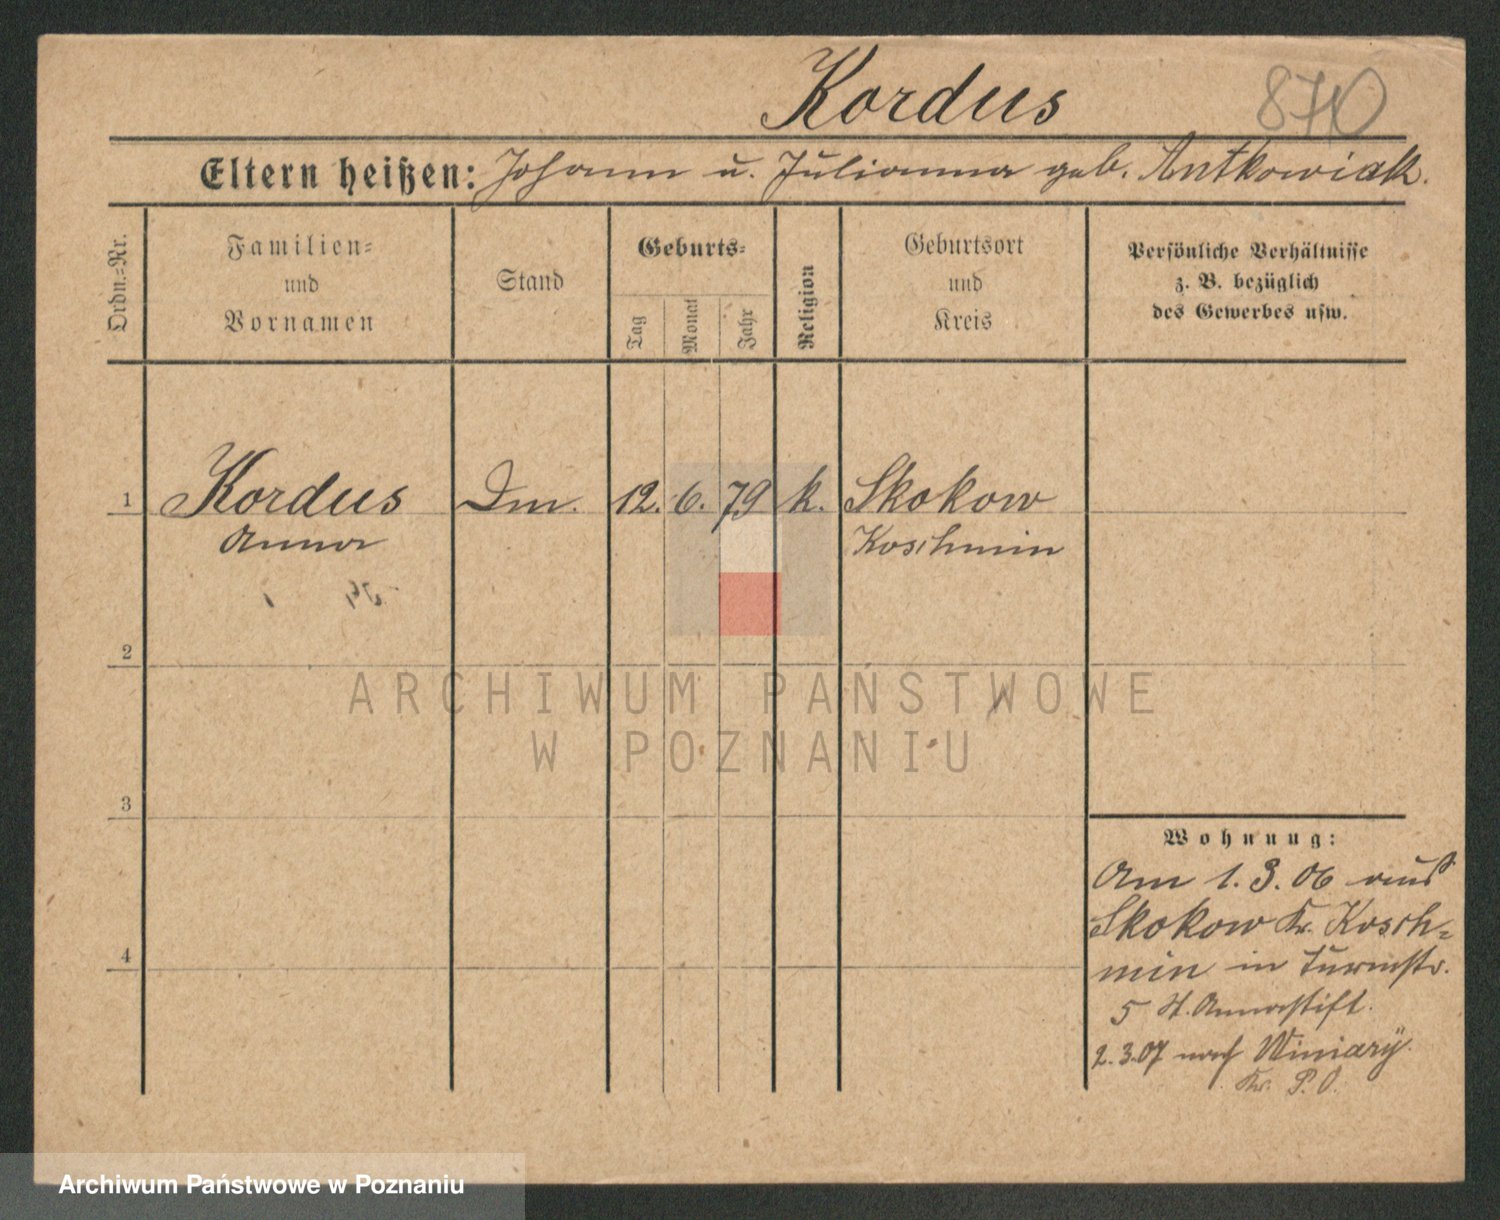 Kordus
870
Eltern heißen: Johann u. Julianna geb. Antkowiak.
Ordn.=Nr.
Familien=
und
Vornamen
Stand
Geburts=
Tag
Monat
Jahr
Religion
Geburtsort
und
Kreis
Persönliche Verhältnisse
z. B. bezüglich
des Gewerbes usw.
1 Kordus Dm. 12. 6. 79 k. Skokow
Anna Koschmin
2
ARCHIWUM PAŃSTWOWE
W POZNANIU
3
Wohnung:
Am 1.3.06 aus
Skokow Kr. Kosch=
min in Turmstr.
4
5 St. Annastift.
2.3.07 nach Winiary
Kr. P. O.
Archiwum Państwowe w Poznaniu